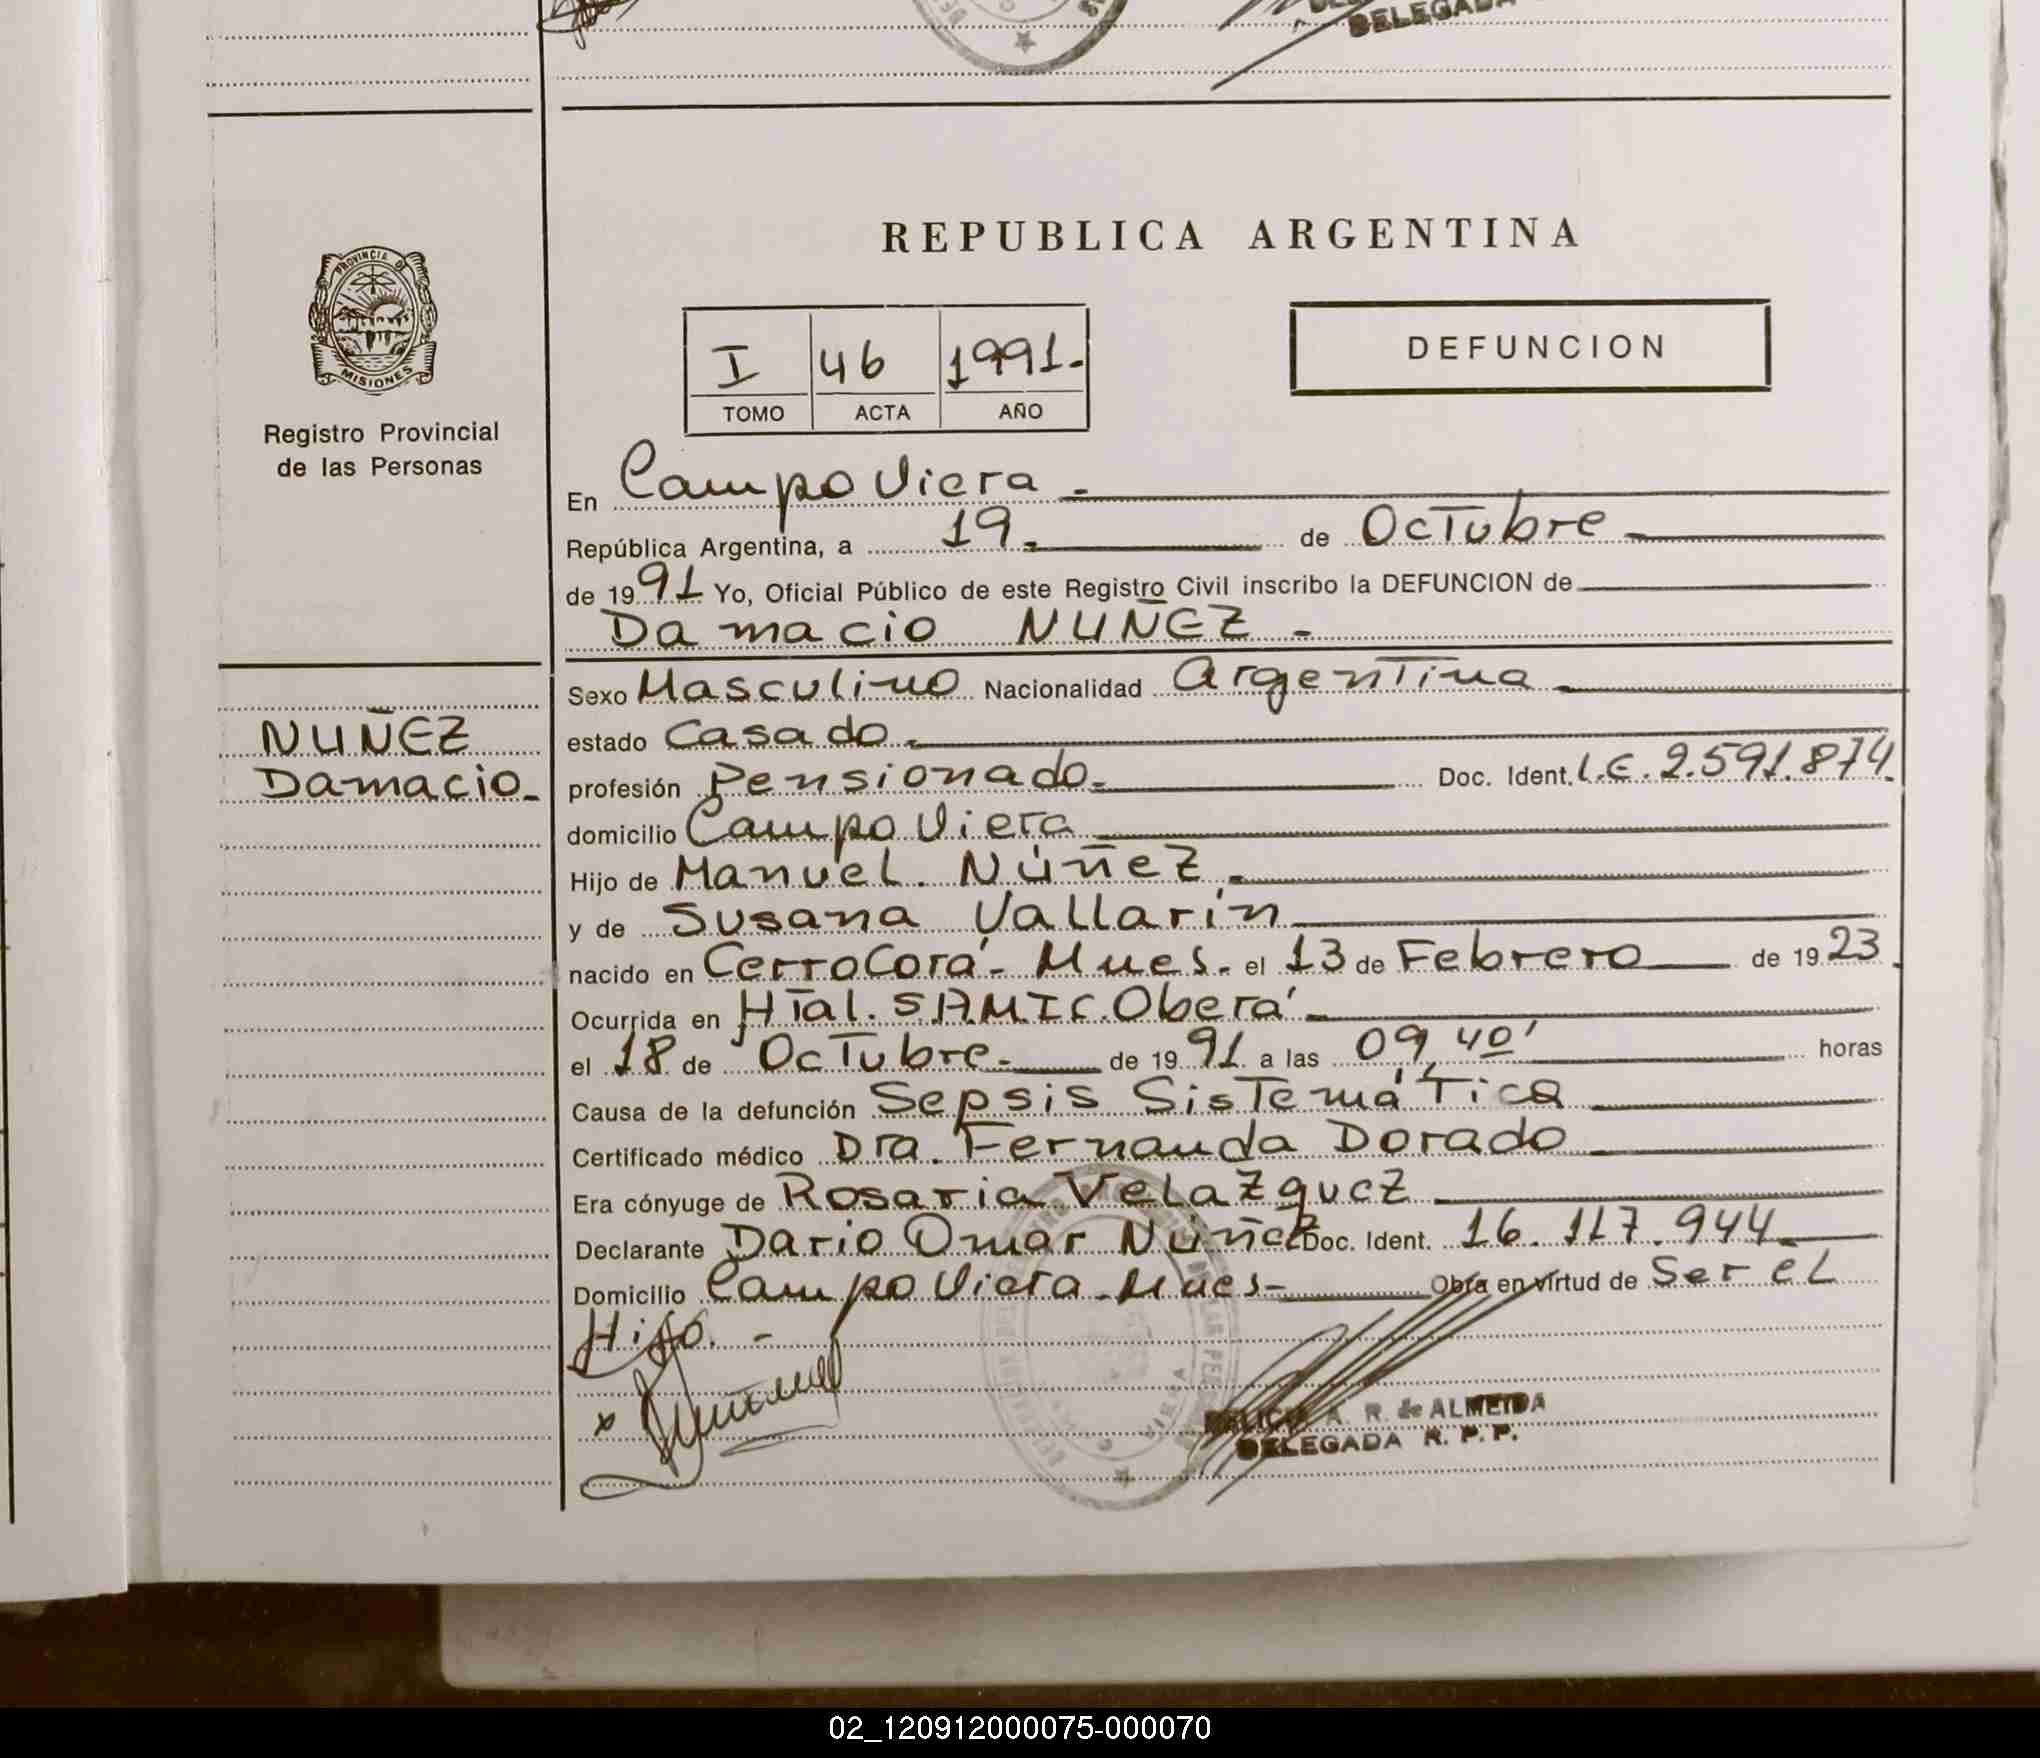 DELEGADA
REPUBLICA ARGENTINA
PROVINCIA DE
MISIONES
Registro Provincial
de las Personas
I 46 1991.
TOMO ACTA AÑO
DEFUNCION
En Campo Viera -
República Argentina, a 19. de Octubre
de 1991 Yo, Oficial Público de este Registro Civil inscribo la DEFUNCION de
Damacio NUÑEZ -
NUÑEZ
Damacio-
Sexo Masculino Nacionalidad Argentina -
estado Casado -
profesión Pensionado - Doc. Ident. L.E. 2.591.874.
domicilio Campo Viera
Hijo de Manuel Núñez -
y de Susana Vallarín
nacido en Cerro Corá - Mnes - el 13 de Febrero de 1923
Ocurrida en Htal. SAMIC Oberá -
el 18 de Octubre - de 1991 a las 09,40' horas
Causa de la defunción Sepsis Sistemática
Certificado médico Dra. Fernanda Dorado
Era cónyuge de Rosaria Velazquez
Declarante Dario Omar Núñez Doc. Ident. 16.117.944
Domicilio Campo Viera - Mnes - Obra en virtud de Ser el
Hijo. -
x
A. R. de ALMEIDA
DELEGADA R. P. P.
02_120912000075-000070